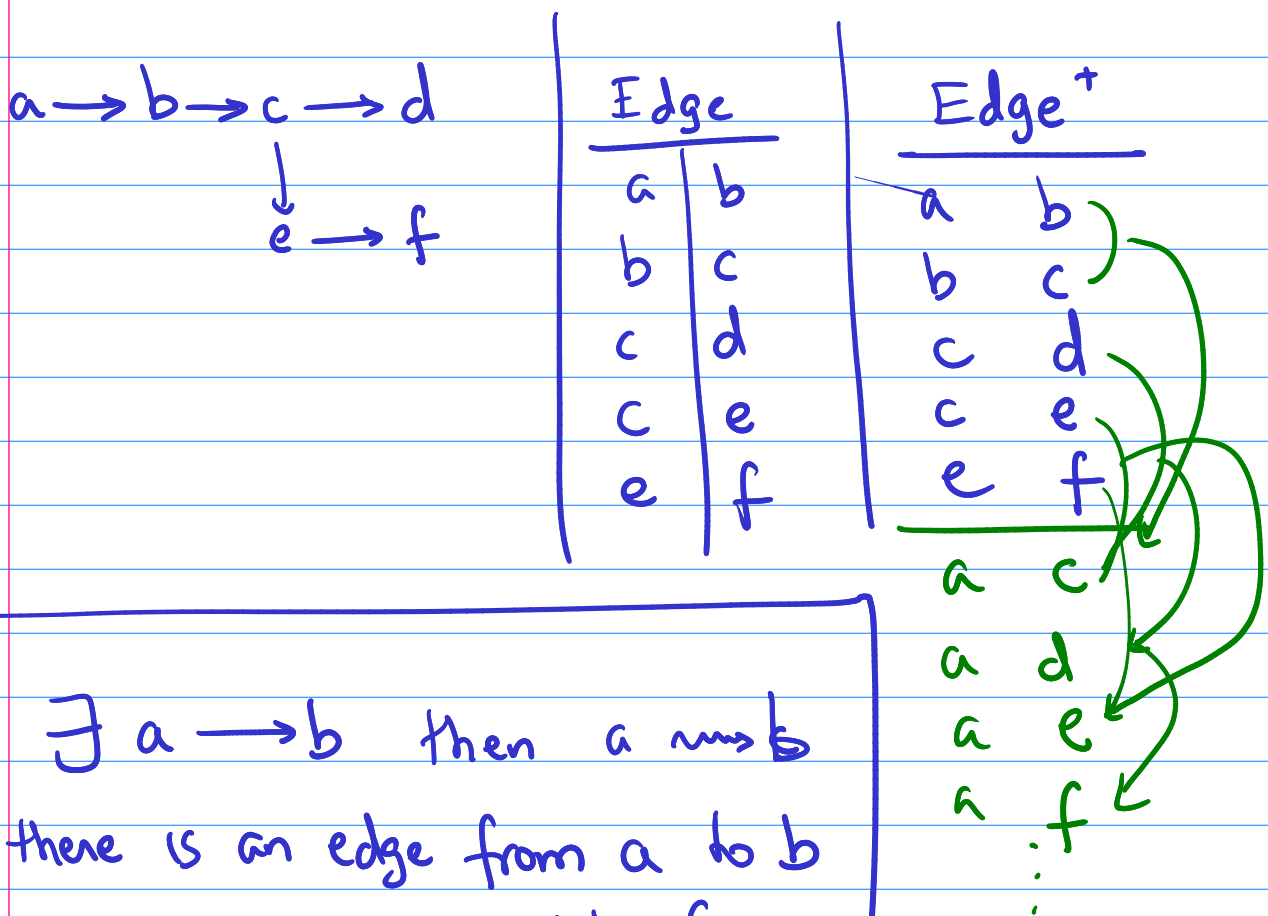 a → b → c → d
↓
e → f
Edge
a b
b c
c d
c e
e f
Edge⁺
a b
b c
c d
c e
e f
a c
a d
a e
a f
⋮
∃ a → b then a ⇝ b
there is an edge from a to b